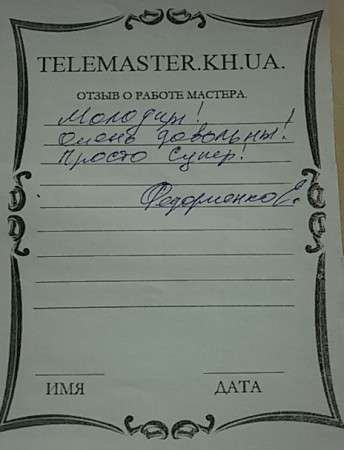 TELEMASTER.KH.UA.
ОТЗЫВ О РАБОТЕ МАСТЕРА.
Молодцы!
Очень довольны!
Просто Супер!
Федориенко С.
ИМЯ ДАТА